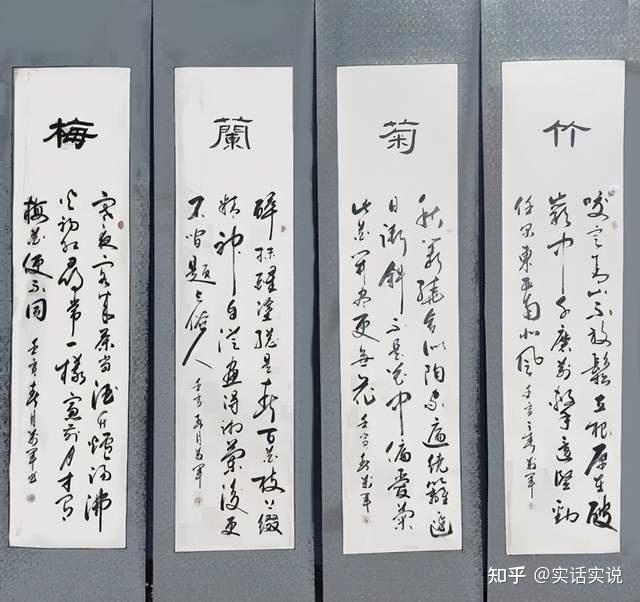 梅
寒夜客来茶当酒竹炉汤沸
火初红寻常一样窗前月才有
梅花便不同 壬寅春月万军书
蘭
醉抹醒塗总是春百花枝上缀
精神自从画得湘兰后更
不闲题与俗人 壬寅春月万军
菊
秋丛绕舍似陶家遍绕籬边
日渐斜不是花中偏爱菊
此花开尽更无花 壬寅春万军
竹
咬定青山不放鬆立根原在破
巖中千磨万擊还坚勁
任尔東西南北风 壬寅之春万军
知乎 @实话实说